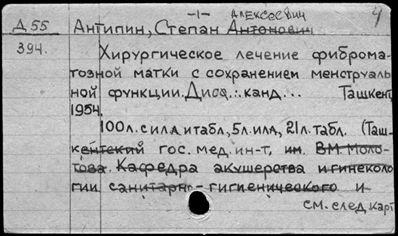 -1- АЛЕКСЕЕВИЧ 4
Д 55 Антипин, Степан Антонович
394. Хирургическое лечение фиброма-
тозной матки с сохранением менструаль
ной функции. Дисс... канд... Ташкент
1954.
100л. с илл и табл, 5л. илл, 21л. табл. (Таш-
кентский гос. мед. ин-т, им. В.М. Моло-
това. Кафедра акушерства и гинеколо
гии санитарно-гигиенического и
см. след. карт